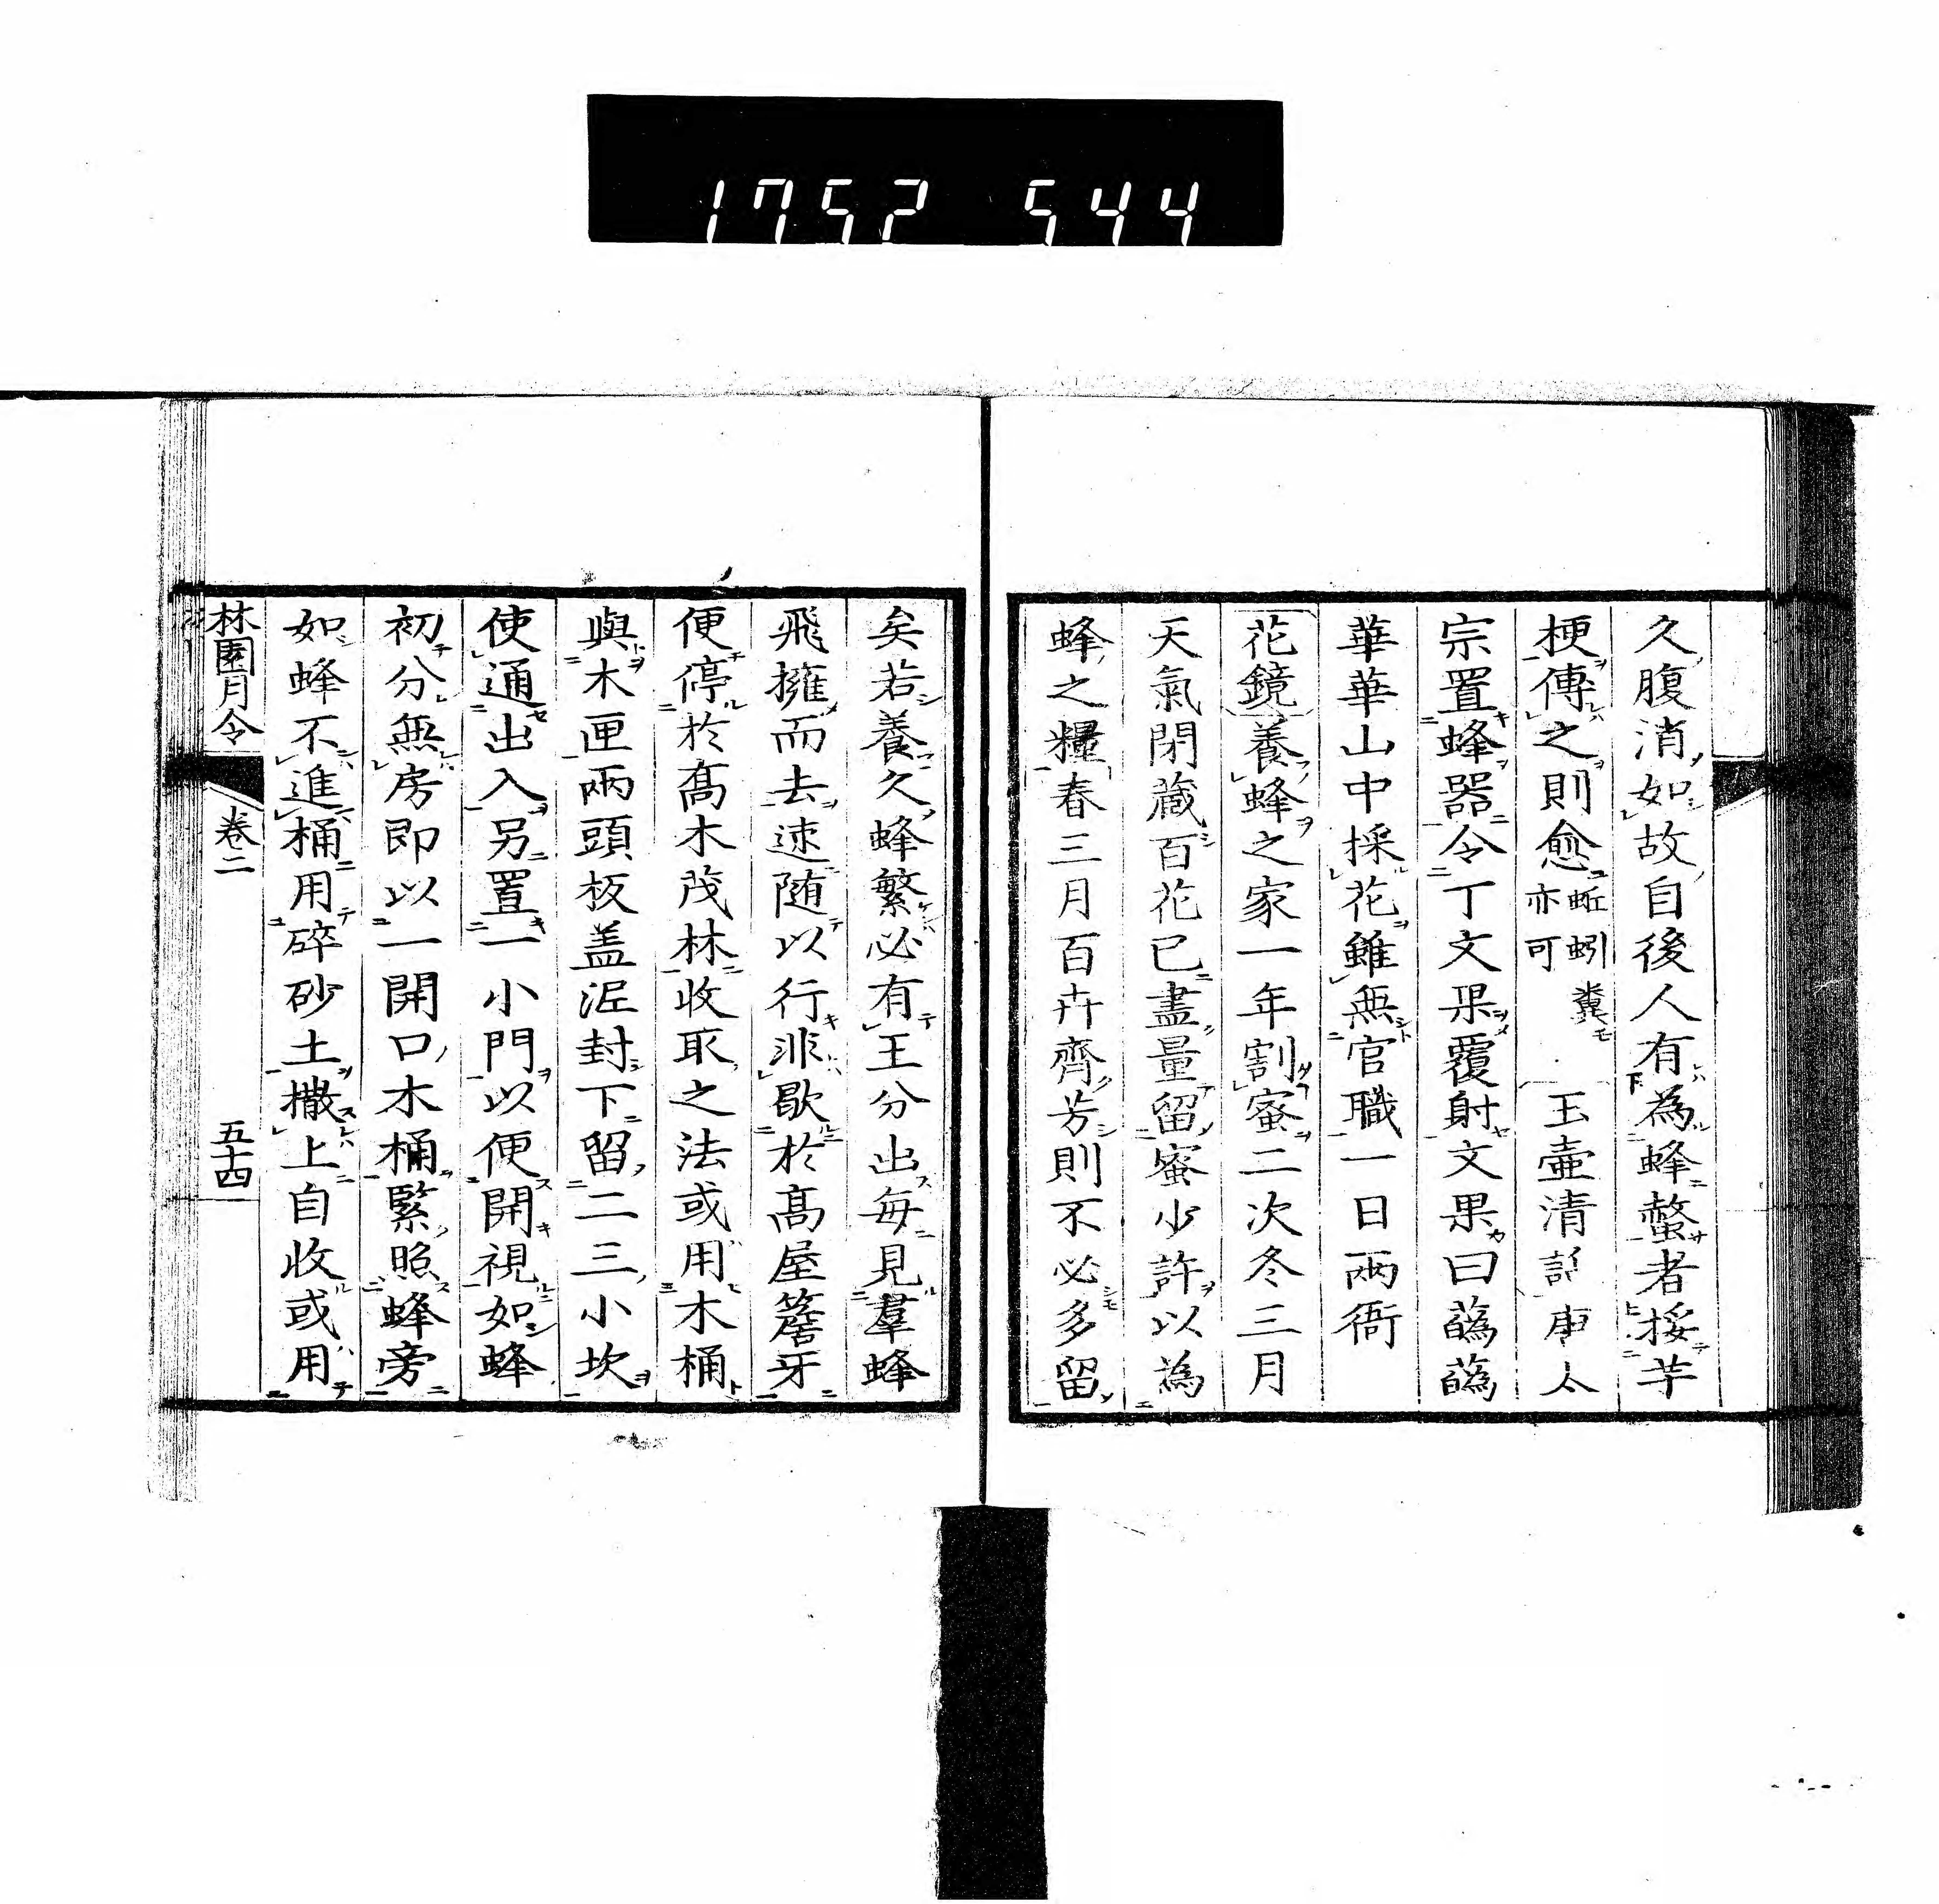 1752 544
久腹消如故自後人有為蜂螫者挼芋
梗傅之則愈蚯蚓糞亦可玉壺清話唐太
宗置蜂器令丁文果覆射文果曰蘤蘤
華華山中採花雖無官職一日兩衙
花鏡養蜂之家一年割蜜二次冬三月
天氣閉蔵百花已盡量留蜜少許以為
蜂之糧春三月百卉齊芳則不必多留
矣若養久蜂繁必有王分出每見羣蜂
飛擁而去速随以行非歇於髙屋簷牙
便停於髙木茂林收取之法或用木桶
與木匣兩頭板盖泥封下留二三小坎
使通出入另置一小門以便開視如蜂
初分無房即以一開口木桶緊照蜂旁
如蜂不進桶用碎砂土撒上自收或用
林園月令 卷二 五十四